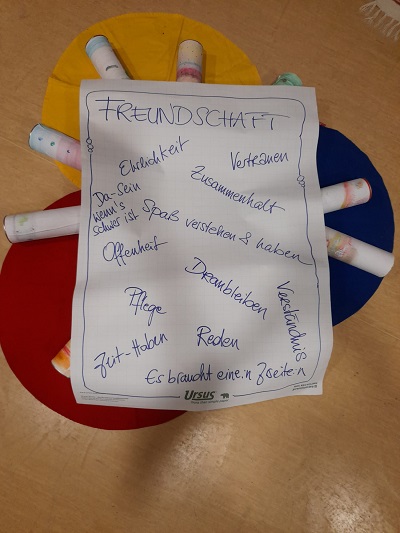 FREUNDSCHAFT
Ehrlichkeit
Vertrauen
Da-Sein
wenn's
schwer ist
Zusammenhalt
Spaß verstehen & haben
Offenheit
Dranbleiben
Verständnis
Pflege
Zeit-Haben
Reden
Es braucht eine:n Zweite:n
Ursus